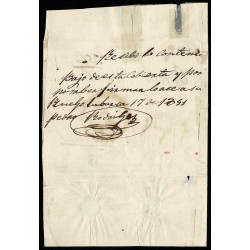 Recibo lo conteni
bajo de esta cubierta y por
no saber firmar lo ace a su
Ruego Cabeza 17 de 1851
pedro Rodriguez